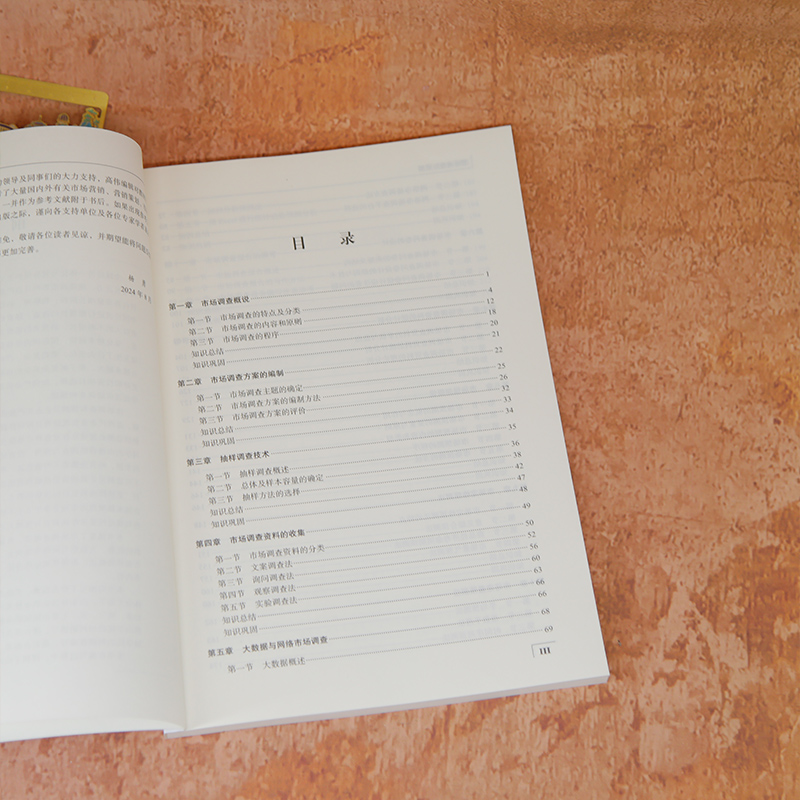 领导及同事们的大力支持，高伟编辑
了大量国内外有关市场营销、营销策划、
一并作为参考文献附于书后。如果出现
版之际，谨向各支持单位及各位专家学者
免，敬请各位读者见谅，并期望能将问题
更加完善。
2024年
目 录
第一章 市场调查概说 1
第一节 市场调查的特点及分类 4
第二节 市场调查的内容和原则 12
第三节 市场调查的程序 18
知识总结 20
知识巩固 21
第二章 市场调查方案的编制 22
第一节 市场调查主题的确定 25
第二节 市场调查方案的编制方法 26
第三节 市场调查方案的评价 32
知识总结 33
知识巩固 34
第三章 抽样调查技术 35
第一节 抽样调查概述 36
第二节 总体及样本容量的确定 38
第三节 抽样方法的选择 42
知识总结 47
知识巩固 48
第四章 市场调查资料的收集 49
第一节 市场调查资料的分类 50
第二节 文案调查法 52
第三节 询问调查法 56
第四节 观察调查法 60
第五节 实验调查法 63
知识总结 66
知识巩固 66
第五章 大数据与网络市场调查 68
第一节 大数据概述 69
III